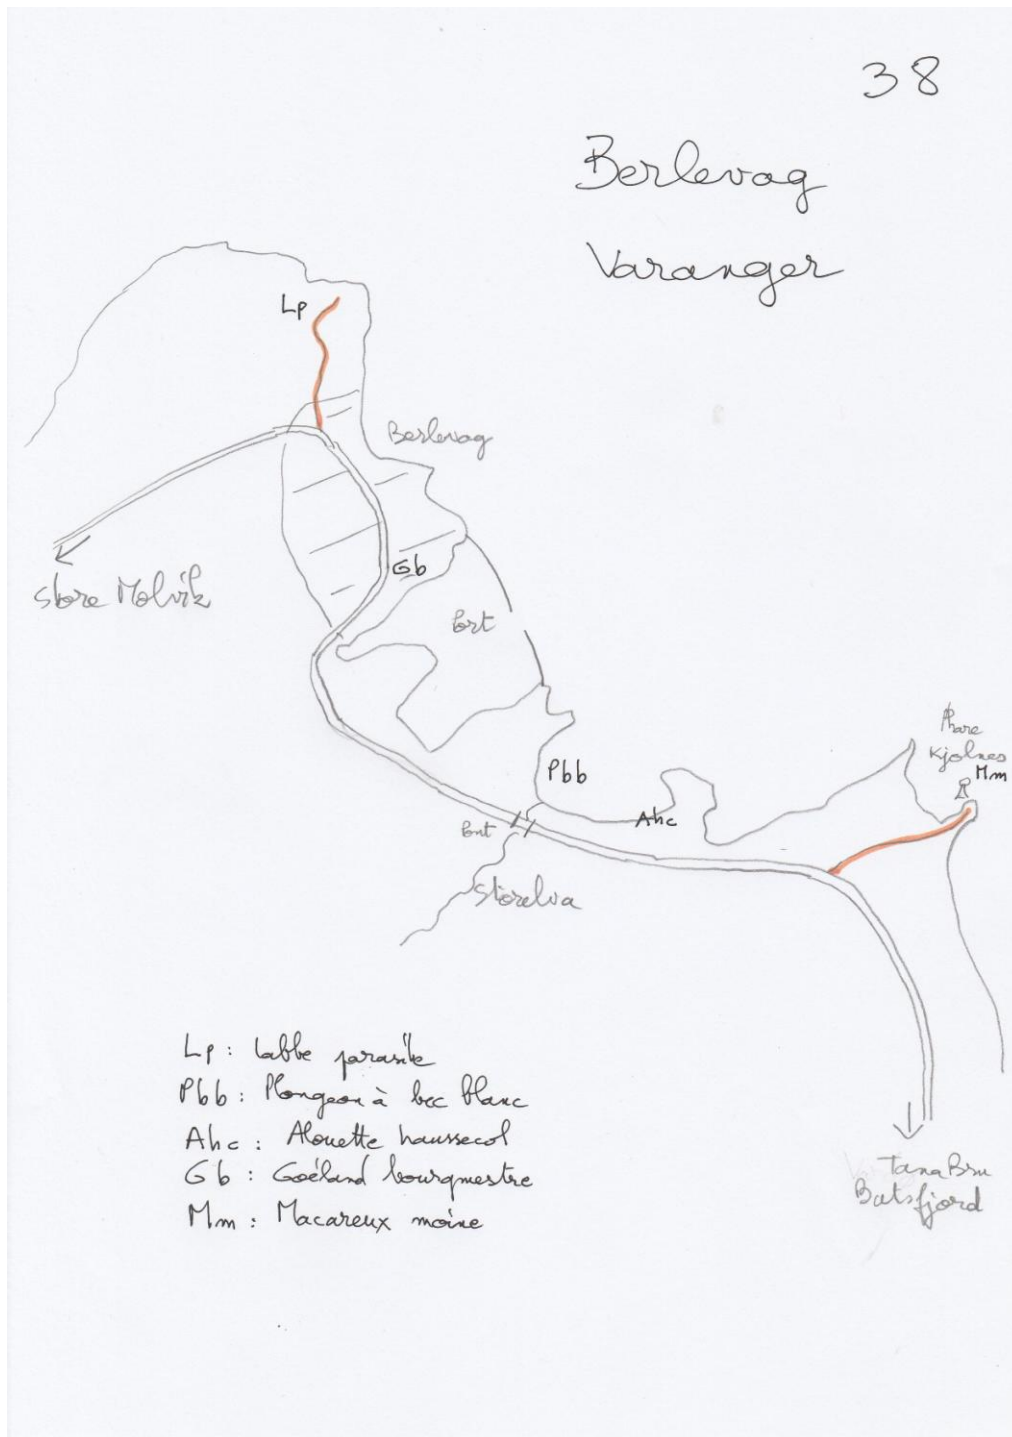 38
Berlevag
Varanger
Lp
Berlevag
Gb
Store Molvik
Port
Phare
Kjolnes
Mm
Pbb
Ahc
Pont
Storelva
Lp : labbe parasite
Pbb : Plongeon à bec blanc
Ahc : Alouette haussecol
Gb : Goéland bourgmestre
Mm : Macareux moine
Tana Bru
Batsfjord